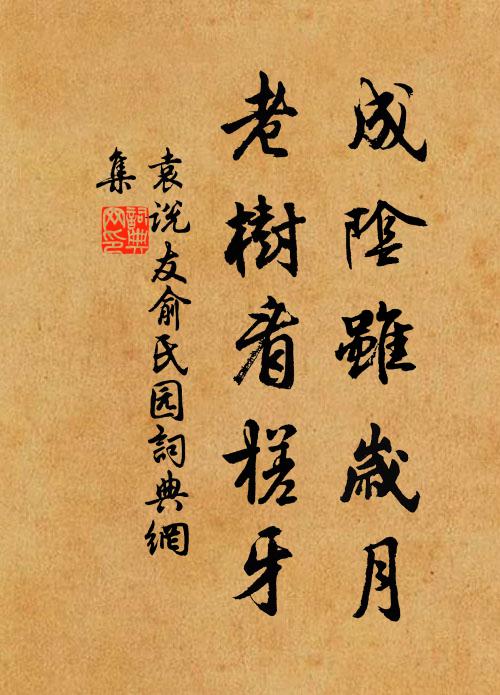 成陰雖歲月
老樹看槎牙
袁说友俞氏园詞典網
集
詞典網印